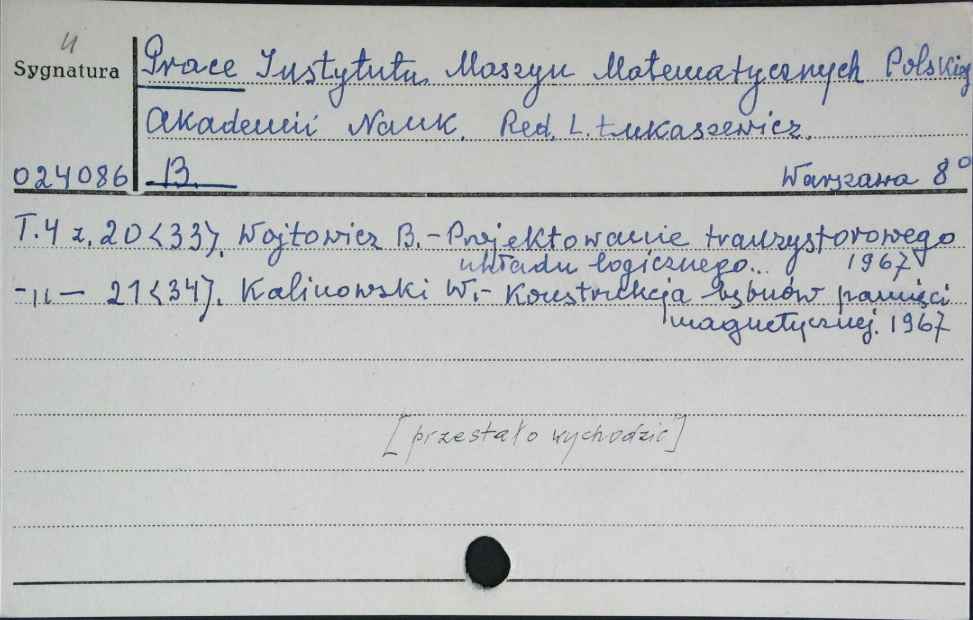 4
Sygnatura
Prace Instytutu Maszyn Matematycznych Polskiej
Akademii Nauk. Red. L. Łukaszewicz.
024086 B. Warszawa 8°
T.4 z. 20<33>. Wojtowicz B. - Projektowanie tranzystorowego
układu logicznego... 1967
-"- 21<34>. Kalinowski W. - Konstrukcja bębnów pamięci
magnetycznej. 1967
[przestało wychodzić]